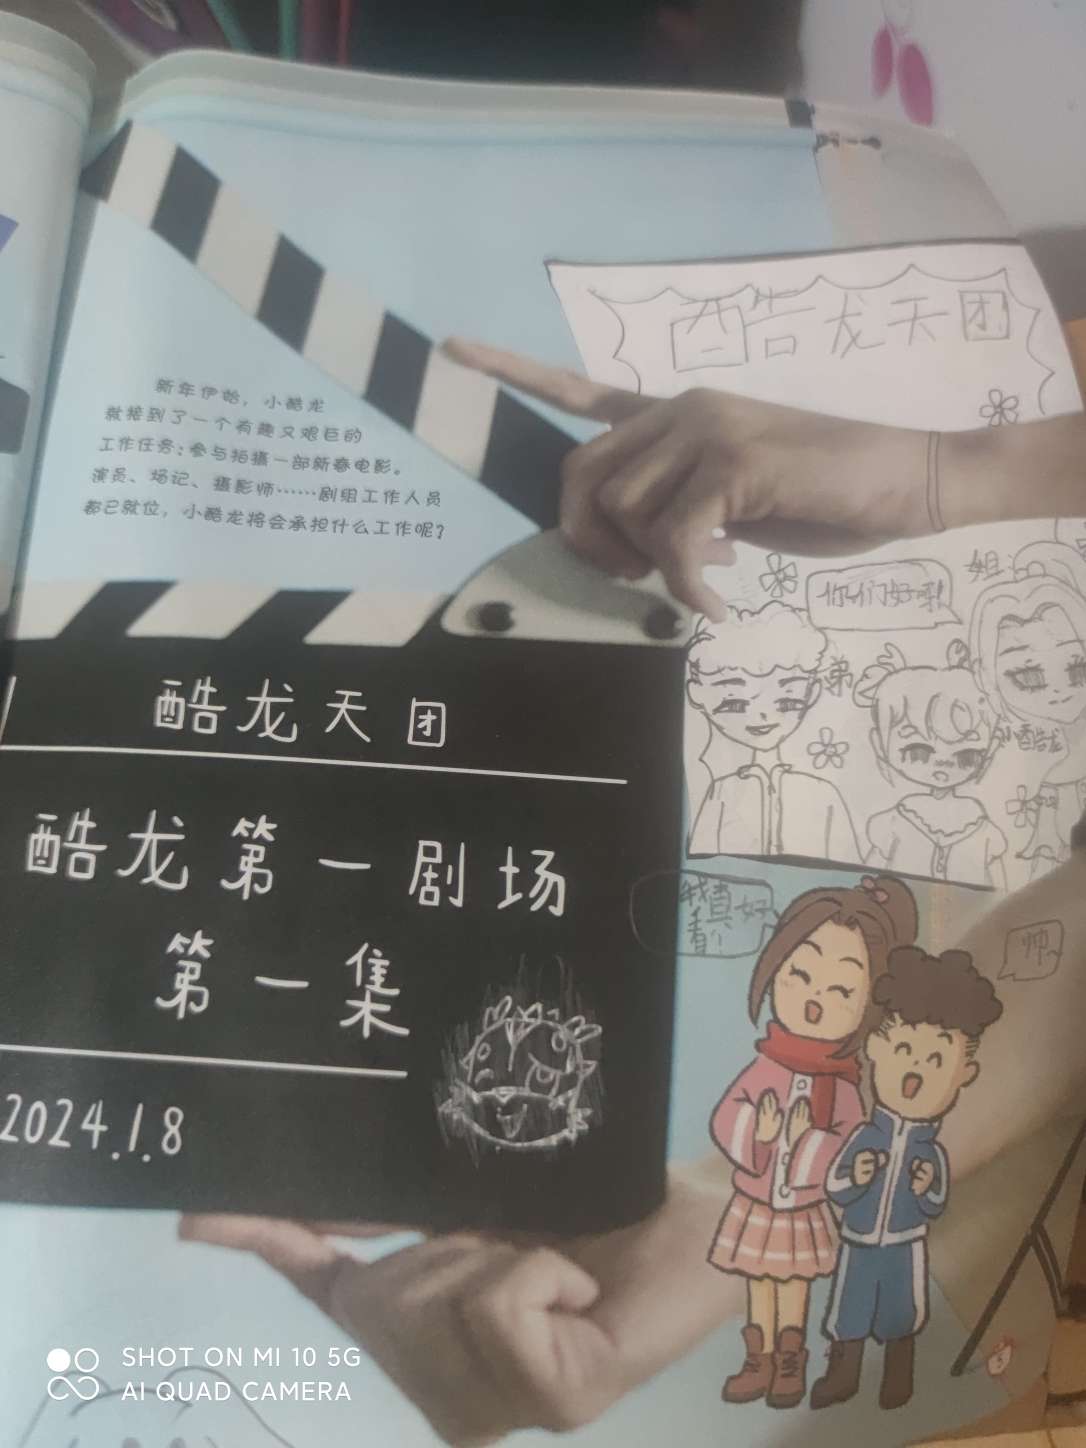 酷龙天团
新年伊始，小酷龙
就接到了一个有趣又艰巨的
工作任务：参与拍摄一部新春电影。
演员、场记、摄影师……剧组工作人员
都已就位，小酷龙将会承担什么工作呢？
姐
你们好呀！
弟
小酷龙
酷龙天团
酷龙第一剧场
第一集
2024.1.8
我真好
看！
帅
5
SHOT ON MI 10 5G
AI QUAD CAMERA